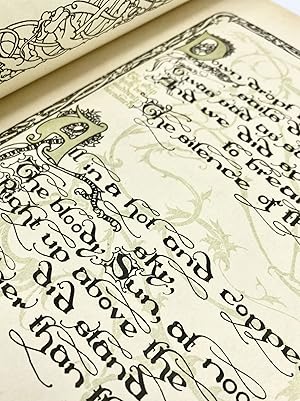 Down dropt
sails d
'Twas sad as s
And we did s
to brea
The silence of th
All in a hot and coppe
sky,
The bloody Sun, at noo
Right up above the
did stand
than th